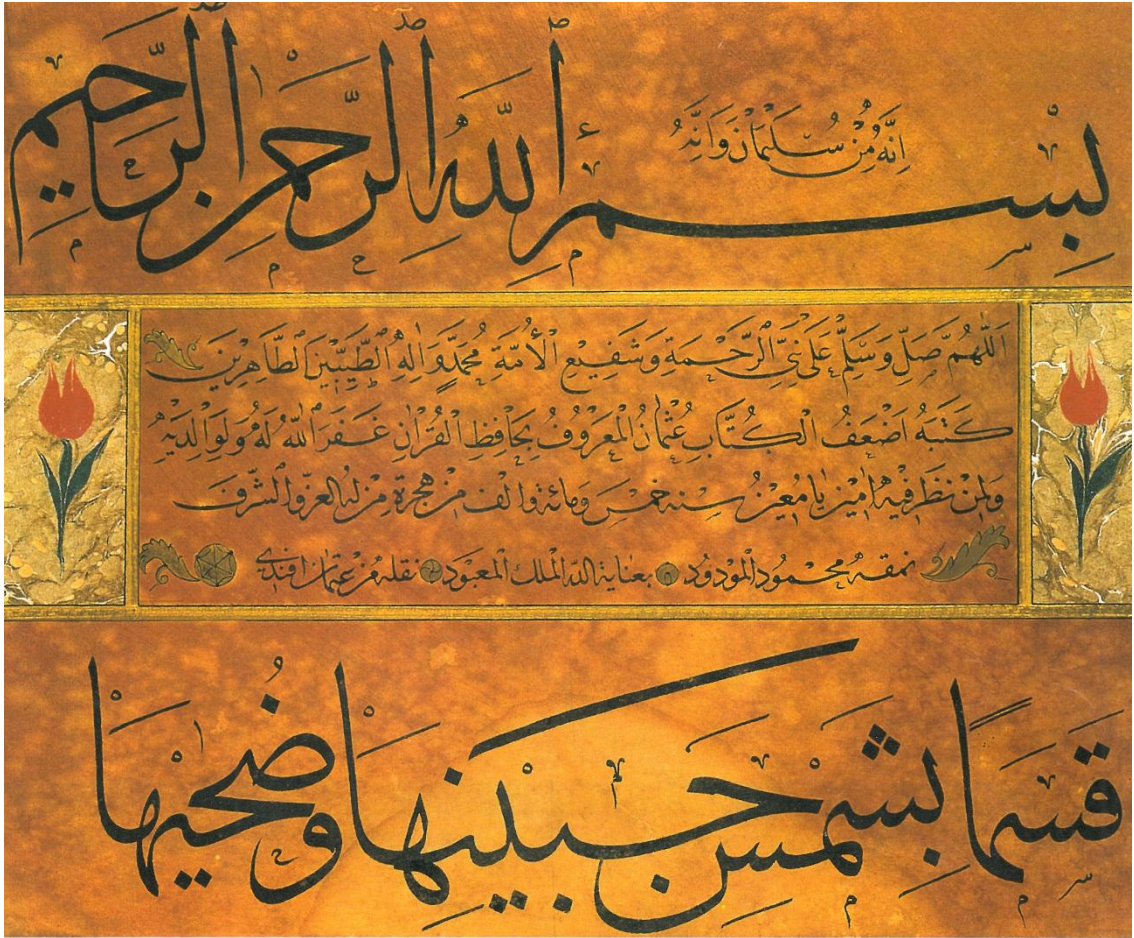 إِنَّهُ مِنْ سُلَيْمَانَ وَإِنَّهُ
بِسْمِ ٱللَّهِ ٱلرَّحْمٰنِ ٱلرَّحِيمِ
اَللّٰهُمَّ صَلِّ وَسَلِّمْ عَلٰى نَبِيِّ ٱلرَّحْمَةِ وَشَفِيعِ ٱلْأُمَّةِ مُحَمَّدٍ وَاٰلِهِ ٱلطَّيِّبِينَ ٱلطَّاهِرِينَ
كَتَبَهُ اَضْعَفُ الْكُتَّابِ عُثْمَانُ الْمَعْرُوفُ بِحَافِظِ الْقُرْاٰنِ غَفَرَ ٱللّٰهُ لَهُ وَلِوَالِدَيْهِ
وَلِمَنْ نَظَرَ فِيهِ اٰمِينَ يَا مُعِينُ سنة خمس ومائة والف من هجرة من له العز والشرف
نمقه محمود المودود بعناية الله الملك المعبود نقله من عثمان افندى
قَسَمًا بِشَمْسِ جَبِينِهَا وَضُحٰيهَا